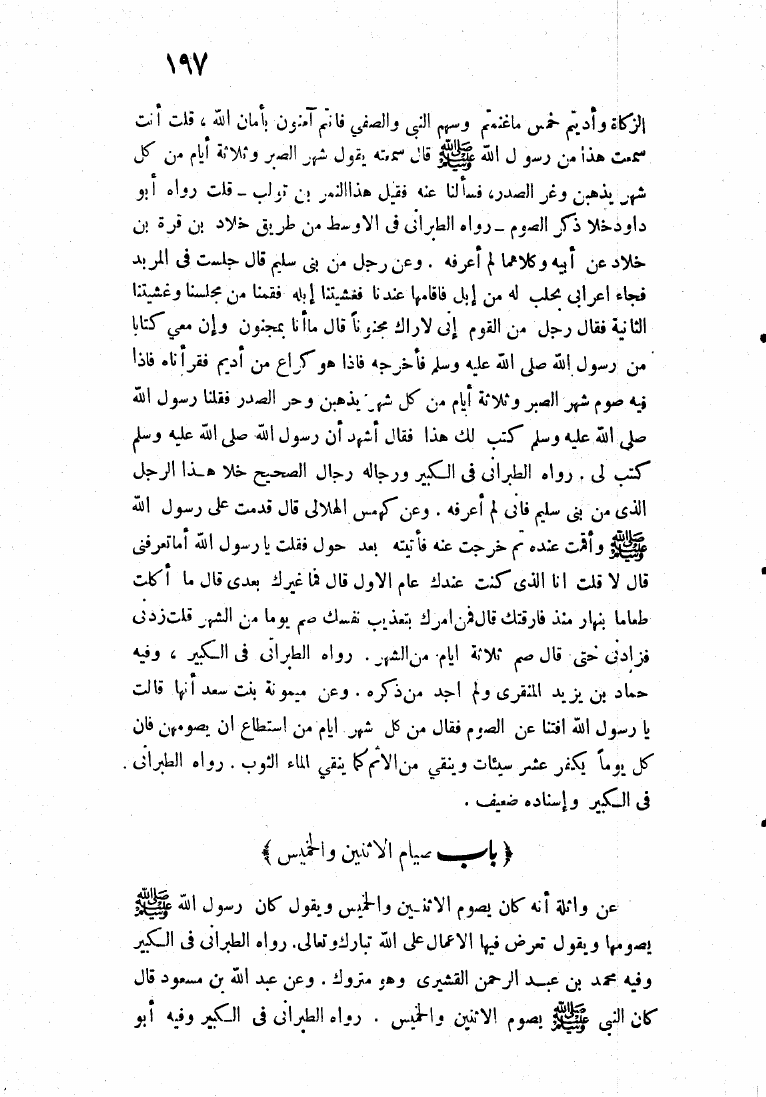 ١٩٧
الزكاة وأديتم خمس ماغنمتم وسهم النبي والصفي فانتم آمنون بأمان الله ، قلت أنت
سمعت هذا من رسول الله ﷺ قال سمعته يقول شهر الصبر وثلاثة أيام من كل
شهر يذهبن وغر الصدر، فسألنا عنه فقيل هذا النمر بن تولب - قلت رواه أبو
داود خلا ذكر الصوم - رواه الطبرانى فى الاوسط من طريق خلاد بن قرة بن
خلاد عن أبيه وكلاهما لم أعرفه . وعن رجل من بنى سليم قال جلست فى المربد
فجاء اعرابى بحلب له من إبل فاقامها عندنا فغشيتنا إبله فقمنا من مجلسنا وغشيتنا
الثانية فقال رجل من القوم إنى لاراك مجنوناً قال ماأنا بمجنون وإن معي كتابا
من رسول الله صلى الله عليه وسلم فأخرجه فاذا هو كراع من أديم فقرأناه فاذا
فيه صوم شهر الصبر وثلاثة أيام من كل شهر يذهبن وحر الصدر فقلنا رسول الله
صلى الله عليه وسلم كتب لك هذا فقال أشهد أن رسول الله صلى الله عليه وسلم
كتب لى . رواه الطبرانى فى الكبير ورجاله رجال الصحيح خلا هذا الرجل
الذى من بنى سليم فانى لم أعرفه . وعن كهمس الهلالى قال قدمت على رسول الله
ﷺ وأقمت عنده ثم خرجت عنه فأتيته بعد حول فقلت يا رسول الله أماتعرفنى
قال لا قلت انا الذى كنت عندك عام الاول قال فما غيرك بعدى قال ما أكلت
طعاما بنهار منذ فارقتك قال فمن امرك بتعذيب نفسك صم يوما من الشهر قلت زدنى
فزادنى حتى قال صم ثلاثة ايام من الشهر . رواه الطبرانى فى الكبير ، وفيه
حماد بن يزيد المنقرى ولم اجد من ذكره . وعن ميمونة بنت سعد أنها قالت
يا رسول الله افتنا عن الصوم فقال من كل شهر ايام من استطاع ان يصومهن فان
كل يوماً يكفر عشر سيئات وينقي من الاثم كما ينقي الماء الثوب . رواه الطبرانى
فى الكبير وإسناده ضعيف .
﴿ باب صيام الاثنين والخميس ﴾
عن واثلة أنه كان يصوم الاثنين والخميس ويقول كان رسول الله ﷺ
يصومها ويقول تعرض فيها الاعمال على الله تبارك وتعالى. رواه الطبرانى فى الكبير
وفيه محمد بن عبد الرحمن القشيرى وهو متروك . وعن عبد الله بن مسعود قال
كان النبي ﷺ يصوم الاثنين والخميس . رواه الطبرانى فى الكبير وفيه أبو